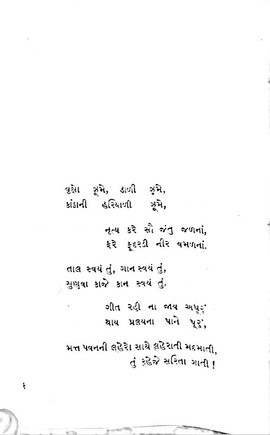 વૃક્ષો ઝૂમે, ડાળી ઝુમે,
કાંઠાની હરિયાળી ઝૂમે,
નૃત્ય કરે સૌ જંતુ જળનાં,
ફરે ફૂદરડી નીર વમળનાં.
તાલ સ્વયં તું, ગાન સ્વયં તું,
સુણવા કાજે કાન સ્વયં તું.
ગીત રહી ના જાય અધૂરું
થાય પ્રલયના પાને પૂરું,
મત્ત પવનની લહેરો સાથે લહેરાતી મદમાતી,
તું રહેજે સરિતા ગાતી !
૬